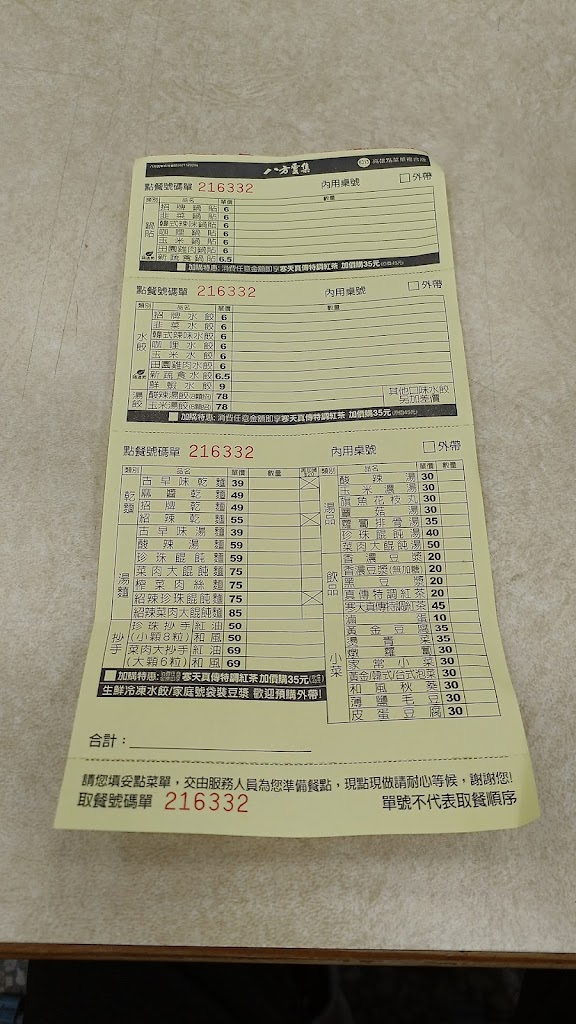 八方雲集
點餐號碼單 216332 內用桌號 □外帶
類別 品名 單價 數量
鍋貼
招牌鍋貼 6
韭菜鍋貼 6
韓式辣味鍋貼 6
咖哩鍋貼 6
玉米鍋貼 6
田園雞肉鍋貼 6
新蔬食鍋貼 6.5
加購特惠: 消費任意金額即享寒天真傳特調紅茶 加價購35元
點餐號碼單 216332 內用桌號 □外帶
類別 品名 單價 數量
水餃
招牌水餃 6
韭菜水餃 6
韓式辣味水餃 6
咖哩水餃 6
玉米水餃 6
田園雞肉水餃 6
新蔬食水餃 6.5
鮮蝦水餃 9
湯餃
酸辣湯餃(8顆餃) 78
玉米湯餃(8顆餃) 78
其他口味水餃
另加差價
加購特惠: 消費任意金額即享寒天真傳特調紅茶 加價購35元
點餐號碼單 216332 內用桌號 □外帶
類別 品名 單價 數量
乾麵
古早味乾麵 39
麻醬乾麵 49
招牌乾麵 49
紹辣乾麵 55
湯麵
古早味湯麵 39
酸辣湯麵 59
珍珠餛飩麵 59
菜肉大餛飩麵 75
榨菜肉絲麵 75
紹辣珍珠餛飩麵 75
紹辣菜肉大餛飩麵 85
抄手
珍珠抄手 紅油 50
(小顆8粒) 和風 50
菜肉大抄手 紅油 69
(大顆6粒) 和風 69
加購特惠: 寒天真傳特調紅茶 加價購35元
生鮮冷凍水餃/家庭號袋裝豆漿 歡迎預購外帶!
類別 品名 單價 數量
湯品
酸辣湯 30
玉米濃湯 30
旗魚花枝丸 30
蕈菇湯 30
蘿蔔排骨湯 35
珍珠餛飩湯 40
菜肉大餛飩湯 50
飲品
香濃豆漿 20
香濃豆漿(無加糖) 20
黑豆漿 20
真傳特調紅茶 20
寒天真傳特調紅茶 45
小菜
滷蛋 10
黃金豆腐 35
燙青菜 35
燉蘿蔔 30
家常小菜 30
黃金/韓式/台式泡菜 30
和風秋葵 30
薄鹽毛豆 30
皮蛋豆腐 30
合計:
請您填妥點菜單，交由服務人員為您準備餐點，現點現做請耐心等候，謝謝您!
取餐號碼單 216332 單號不代表取餐順序